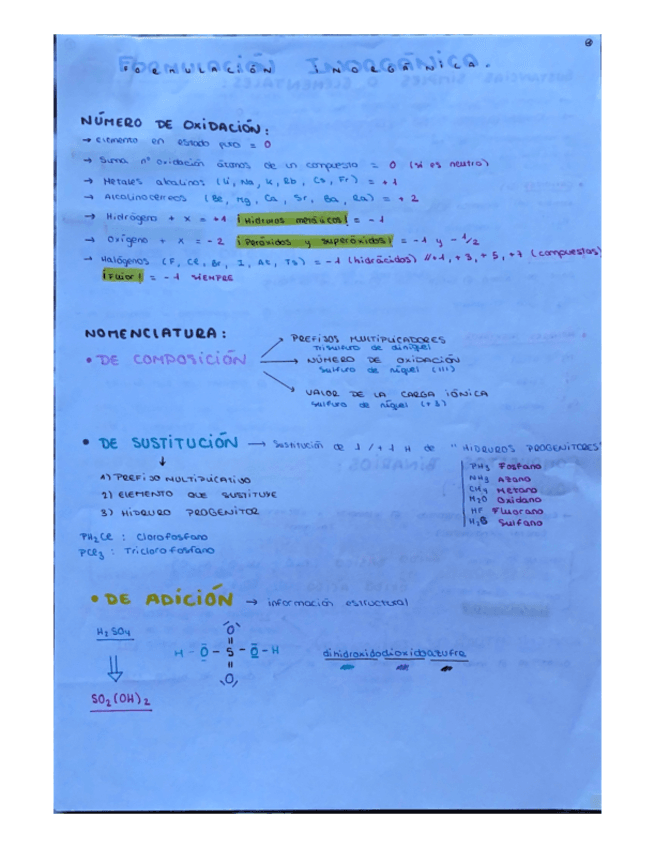 FORMULACIÓN INORGÁNICA.
NÚMERO DE OXIDACIÓN:
→ Elemento en estado puro = 0
→ Suma nº oxidación átomos de un compuesto = 0 (si es neutro)
→ Metales alcalinos (Li, Na, K, Rb, Cs, Fr) = +1
→ Alcalinotérreos (Be, Mg, Ca, Sr, Ba, Ra) = +2
→ Hidrógeno + X = +1 ¡Hidruros metálicos! = -1
→ Oxígeno + X = -2 ¡Peróxidos y superóxidos! = -1 y -1/2
→ Halógenos (F, Cl, Br, I, At, Ts) = -1 (hidrácidos) // +1, +3, +5, +7 (compuestos)
¡Flúor! = -1 SIEMPRE
NOMENCLATURA:
• DE COMPOSICIÓN
PREFIJOS MULTIPLICADORES
Trisulfuro de diníquel
→ NÚMERO DE OXIDACIÓN
Sulfuro de níquel (III)
VALOR DE LA CARGA IÓNICA
Sulfuro de níquel (+3)
• DE SUSTITUCIÓN → Sustitución de 1 / + 1 H de "HIDRUROS PROGENITORES"
1) PREFIJO MULTIPLICATIVO
2) ELEMENTO QUE SUSTITUYE
3) HIDRURO PROGENITOR
PH3 Fosfano
NH3 Azano
CH4 Metano
H2O Oxidano
HF Fluorano
H2S Sulfano
PH2Cl : Clorofosfano
PCl3 : Triclorofosfano
• DE ADICIÓN → información estructural
H2SO4
O
H - O - S - O - H
O
dihidroxidodioxidoazufre
SO2(OH)2